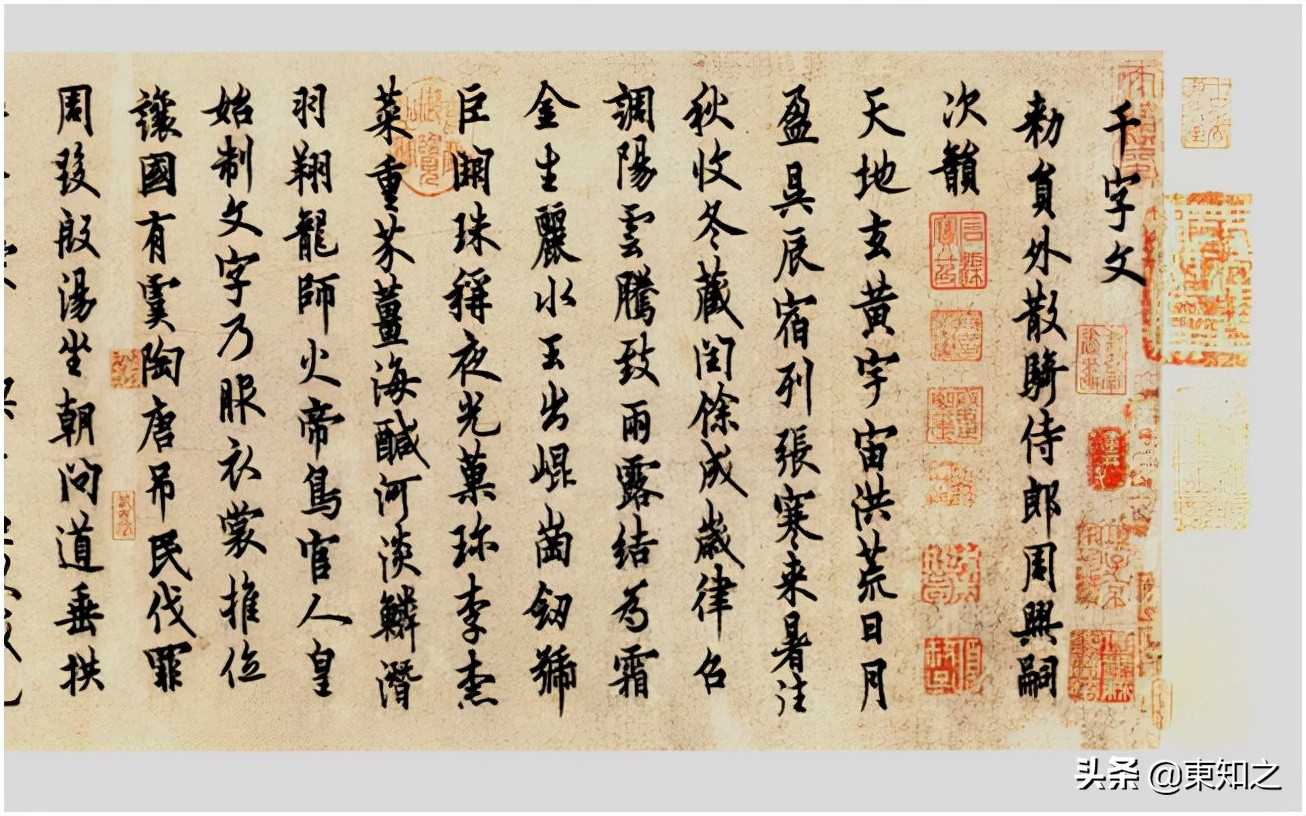 千字文
勑員外散騎侍郎周興嗣
次韻
天地玄黃宇宙洪荒日月
盈昃辰宿列張寒来暑往
秋收冬藏閏餘成歲律召
調陽雲騰致雨露結為霜
金生麗水玉出崐崗劒號
巨闕珠稱夜光菓珎李柰
菜重芥薑海醎河淡鱗潛
羽翔龍師火帝鳥官人皇
始制文字乃服衣裳推位
讓國有虞陶唐吊民伐罪
周發殷湯坐朝問道垂拱
头条 @東知之